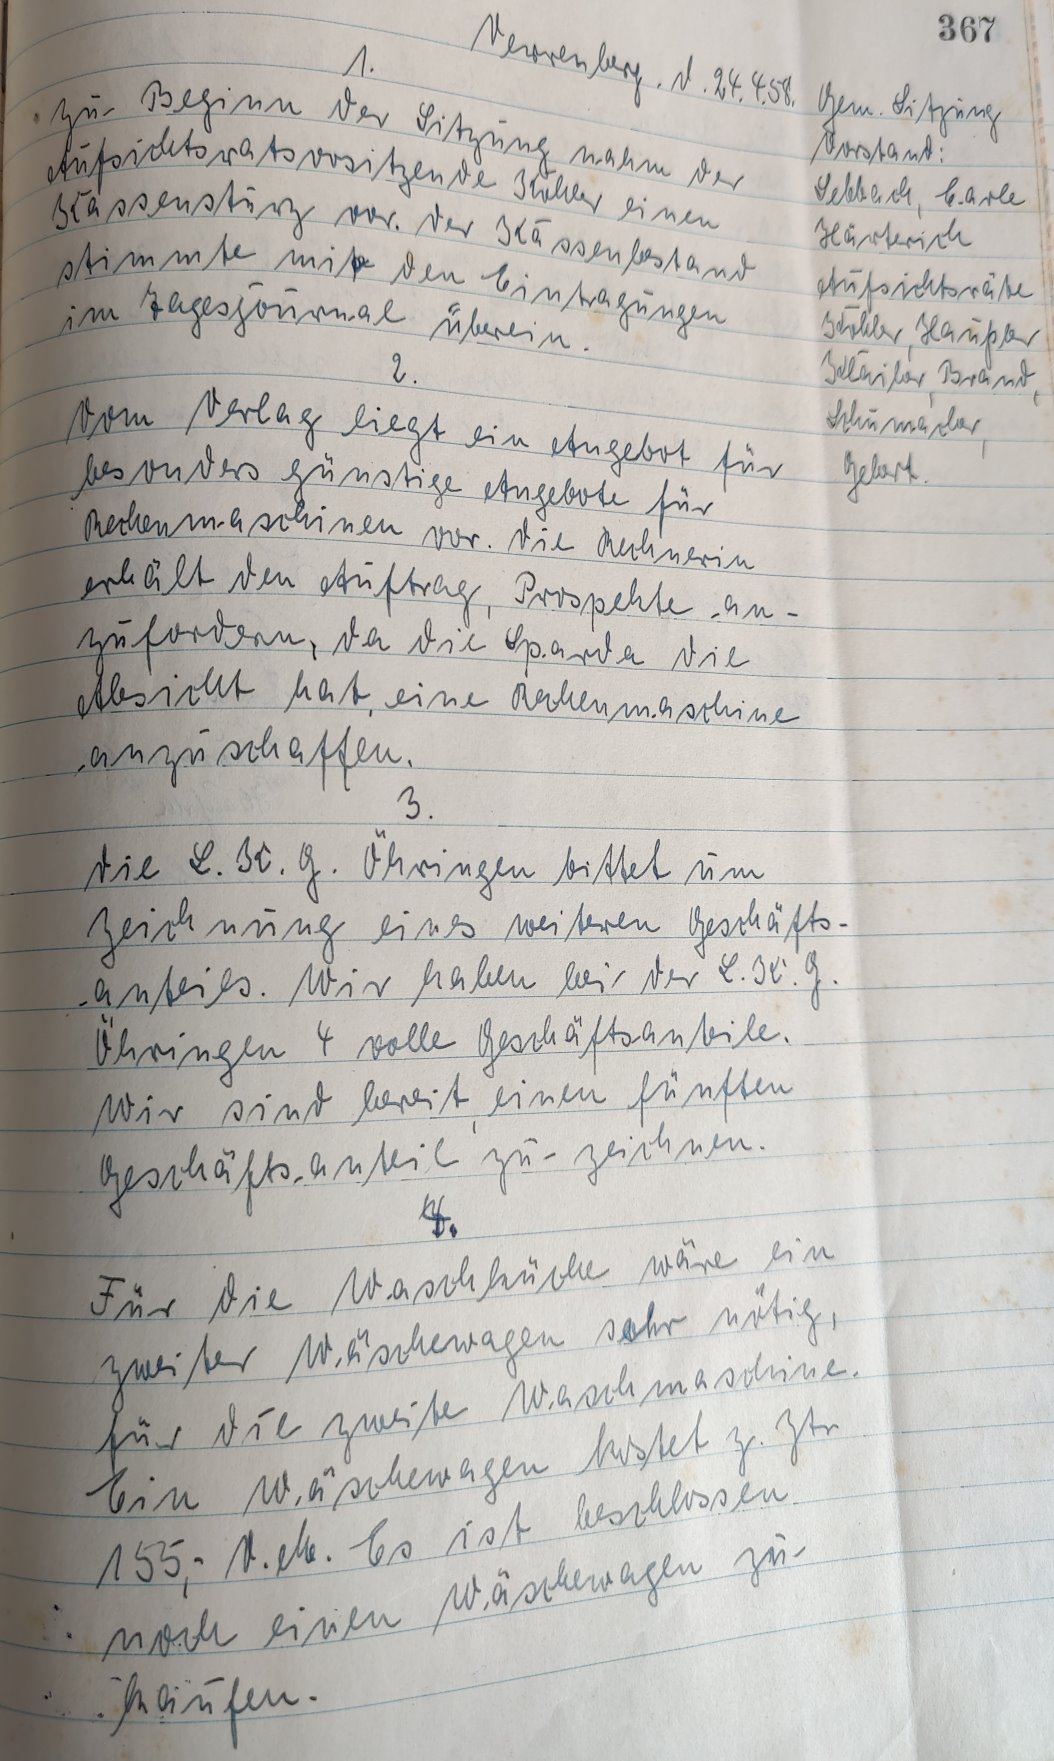 367
Verrenberg. d. 24.4.58.
1.
Zu Beginn der Sitzung nahm der
Aufsichtsratsvositzende Kohler einen
Kassensturz vor. Der Kassenbestand
stimmte mit den Eintragungen
im Tagesjournal überein.
2.
Vom Verlag liegt ein Angebot für
besonders günstige Angebote für
Rechenmaschinen vor. Die Rechnerin
erhält den Auftrag, Prospekte an-
zufordern, da die Sparda die
Absicht hat, eine Rechenmaschine
anzuschaffen.
3.
Die L. K. G. Öhringen bittet um
Zeichnung eines weiteren Geschäfts-
anteils. Wir haben bei der L. K. G.
Öhringen 4 volle Geschäftsanteile.
Wir sind bereit, einen fünften
Geschäftsanteil zu zeichnen.
4.
Für die Waschküche wäre ein
zweiter Wäschewagen sehr nötig,
für die zweite Waschmaschine.
Ein Wäschewagen kostet z. Ztr
155,- D.M. Es ist beschlossen
noch einen Wäschewagen zu
kaufen.
Gem. Sitzung
Vorstand:
Carle
Härterich
Aufsichtsräte
Kohler,
Brand,
Schumacher,